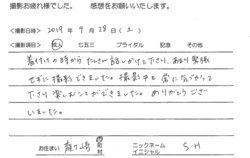 撮影お疲れ様でした。 感想をお願いいたします。
<撮影日時> 2019年 9月 28日 (土)
<撮影種目> 成人 七五三 ブライダル 記念 その他
着付けの時からたくさん話しかけて下さり、あまり緊張
せずに撮影できました。撮影中も常に気づかって
下さり楽しむことができました。ありがとうござ
いました。
お住まい 龍ヶ崎 市 町 村 ニックネーム イニシャル S・H